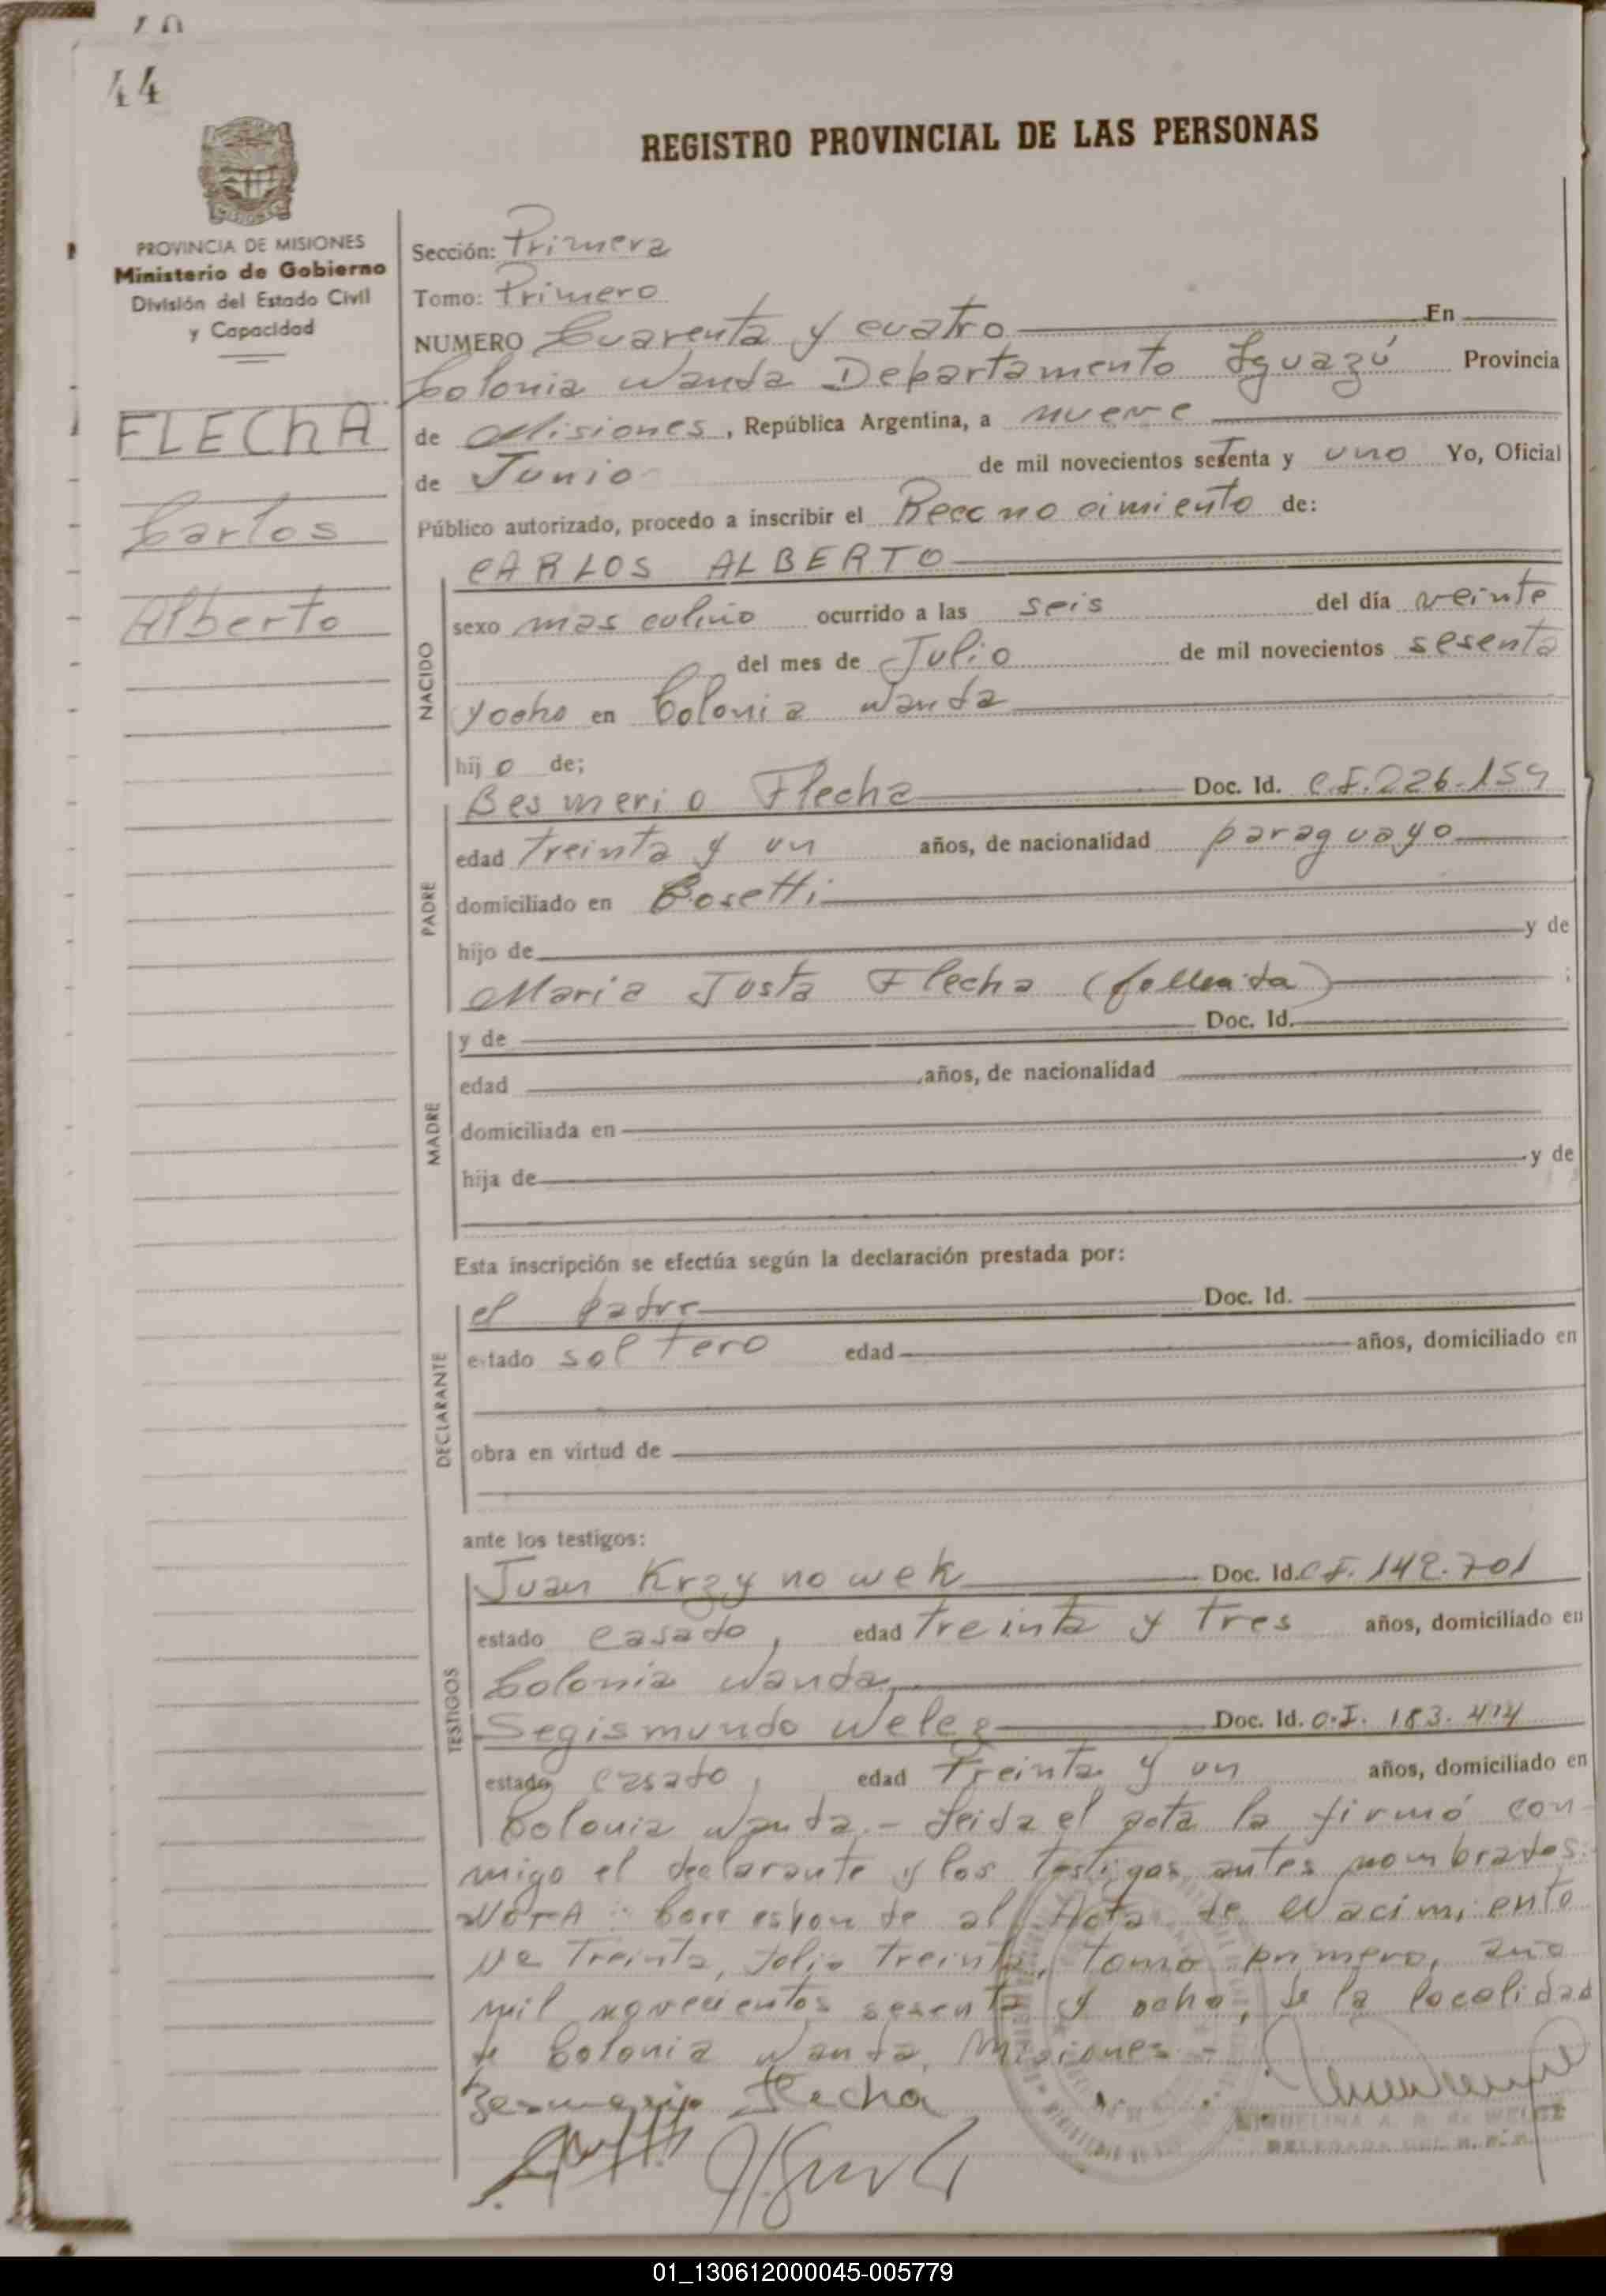 44
REGISTRO PROVINCIAL DE LAS PERSONAS
PROVINCIA DE MISIONES
Ministerio de Gobierno
División del Estado Civil
y Capacidad
FLECHA
Carlos
Alberto
Sección: Primera
Tomo: Primero
NUMERO Cuarenta y cuatro En
Colonia Wanda Departamento Iguazú Provincia
de Misiones, República Argentina, a nueve
de Junio de mil novecientos setenta y uno Yo, Oficial
Público autorizado, procedo a inscribir el Reconocimiento de:
CARLOS ALBERTO
NACIDO
sexo masculino ocurrido a las seis del día veinte
del mes de Julio de mil novecientos sesenta
yocho en Colonia Wanda
hijo de;
PADRE
Besmerio Flecha Doc. Id. C.I. 226.159
edad treinta y un años, de nacionalidad paraguayo
domiciliado en Bosetti
hijo de y de
Maria Justa Flecha (fallecida) ;
MADRE
y de Doc. Id.
edad ,años, de nacionalidad
domiciliada en
hija de y de
Esta inscripción se efectúa según la declaración prestada por:
DECLARANTE
el padre Doc. Id.
estado soltero edad años, domiciliado en
obra en virtud de
ante los testigos:
TESTIGOS
Juan Krzynowek Doc. Id. C.I. 142.701
estado casado, edad treinta y tres años, domiciliado en
Colonia Wanda
Segismundo Welez Doc. Id. C.I. 183.474
estado casado, edad treinta y un años, domiciliado en
Colonia Wanda.- Leida el acta la firmó con-
migo el declarante y los testigos antes nombrados.
NOTA: Corresponde al Acta de Nacimiento
Nº Treinta, folio treinta, tomo primero, año
mil novecientos sesenta y ocho, de la localidad
de Colonia Wanda, Misiones.-
Besmerio Flecha
MIQUELINA A. R. de WELEZ
DELEGADA DEL R. P. P.
01_130612000045-005779